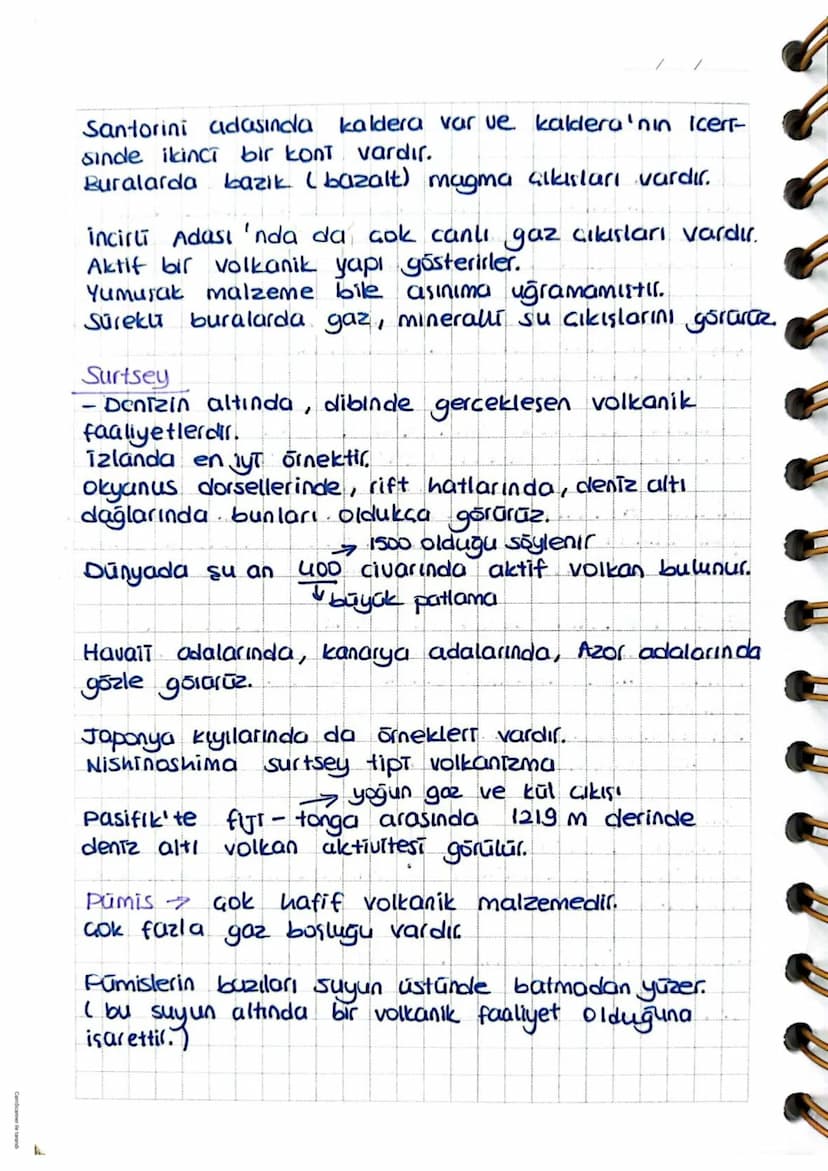 / /
Santorini adasında kaldera var ve kaldera'nın içeri-
sinde ikinci bir koni vardır.
Buralarda bazik (bazalt) magma çıkışları vardır.
İncirli Adası'nda da çok canlı gaz çıkışları vardır.
Aktif bir volkanik yapı gösterirler.
Yumuşak malzeme bile aşınıma uğramamıştır.
Sürekli buralarda gaz, mineralli su çıkışlarını görürüz.
Surtsey
- Denizin altında, dibinde gerçekleşen volkanik
faaliyetlerdir.
İzlanda en iyi örnektir.
Okyanus dorsellerinde, rift hatlarında, deniz altı
dağlarında bunları oldukça görürüz.
→ 1500 olduğu söylenir
Dünyada şu an 400 civarında aktif volkan bulunur.
↓ büyük patlama
Havaii adalarında, kanarya adalarında, Azor adalarında
gözle görürüz.
Japonya kıyılarında da örnekleri vardır.
Nishinoshima surtsey tipi volkanizma
→ yoğun gaz ve kül çıkışı
Pasifik'te fiji - tonga arasında 1219 m derinde
deniz altı volkan aktivitesi görülür.
Pümis → çok hafif volkanik malzemedir.
Çok fazla gaz boşluğu vardır
Pümislerin bazıları suyun üstünde batmadan yüzer.
( bu suyun altında bir volkanik faaliyet olduğuna
işarettir.)
CamScanner ile tarandı